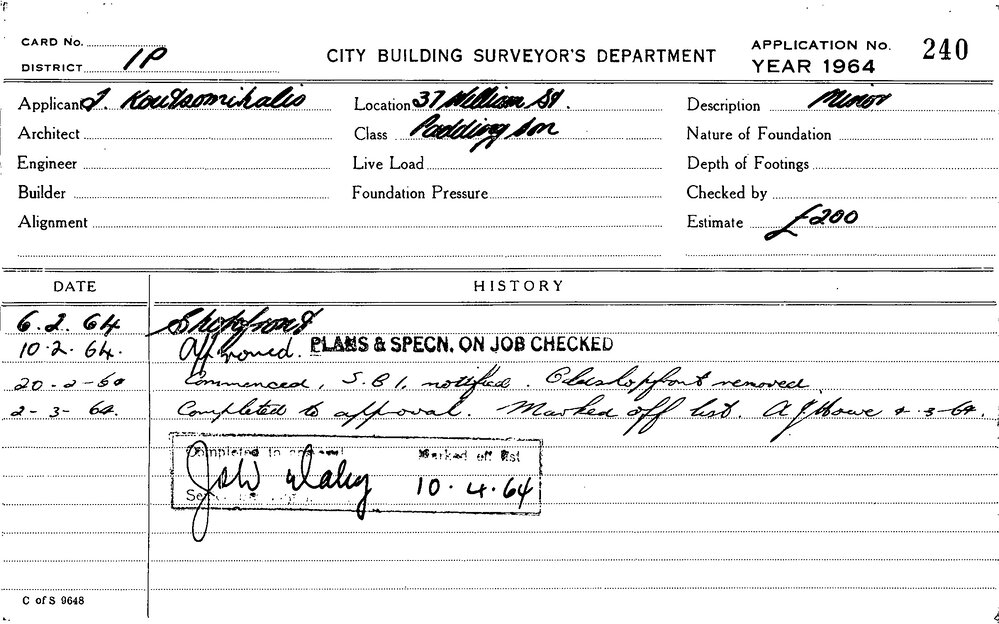 CARD No.
DISTRICT 1P
CITY BUILDING SURVEYOR'S DEPARTMENT
APPLICATION No. 240
YEAR 1964
Applicant J. Koutsomihalis
Location 37 William St.
Description Minor
Architect
Class Paddington
Nature of Foundation
Engineer
Live Load
Depth of Footings
Builder
Foundation Pressure
Checked by
Alignment
Estimate £200
DATE HISTORY
6.2.64 Shopfront
10.2.64. Approved. PLANS & SPECN. ON JOB CHECKED
20-2-64 Commenced, S.B.I. notified. Old shopfront removed.
2-3-64. Completed to approval. Marked off list. A J Howe 2.3-64.
Completed to approval Marked off list
10.4.64
C of S 9648